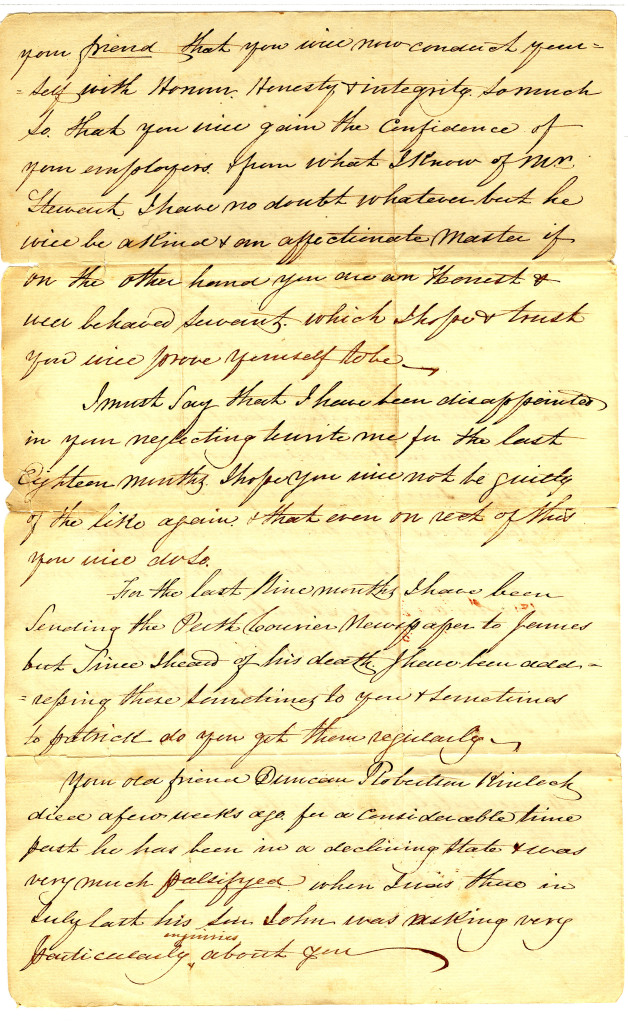 your friend that you will now conduct your=
=self with Honour. Honesty & integrity. So much
So. that you will gain the Confidence of
your employers. & from what I Know of Mr.
Stewart. I have no doubt whatever but he
will be a Kind & an affectionate Master if
on the other hand you are an Honest &
well behaved Servant. which I hope & trust
you will prove yourself to be
I must Say that I have been disappointed
in your neglecting to write me for the last
Eighteen months. I hope you will not be guilty
of the like again. & that even on rect of this
you will do So.
For the last Nine months I have been
Sending the Perth Courier Newspaper to James
but Since I heard of his death I have been add=
=ressing these Sometimes to you & Sometimes
to patrick do you get them regularly
Your old friend Duncan Robertson Kinloch
died a few weeks ago. for a Considerable time
past he has been in a declining State & was
very much palsifyed when I was there in
July last his Son John was making very
particularly inquiries about you